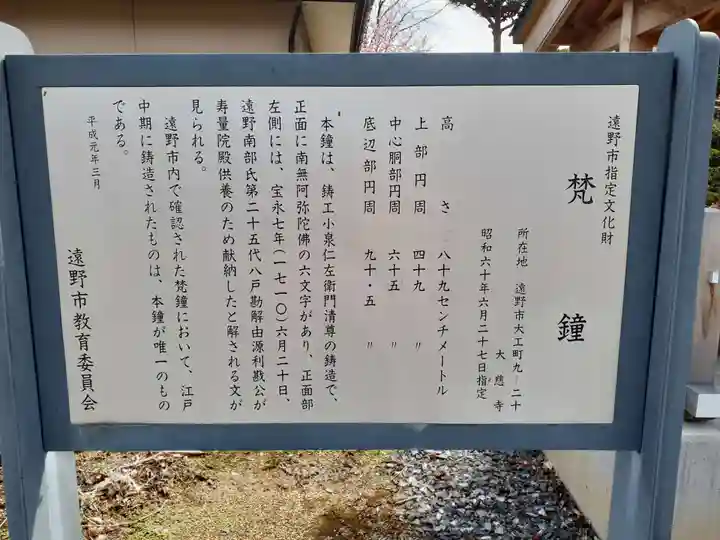 遠野市指定文化財
梵鐘
所在地　遠野市大工町九ー二十
大慈寺
昭和六十年六月二十七日指定
高さ　八十九センチメートル
上部円周　四十九　〃
中心胴部円周　六十五　〃
底辺部円周　九十・五　〃
本鐘は、鋳工小泉仁左衛門清尊の鋳造で、
正面に南無阿弥陀佛の六文字があり、正面部
左側には、宝永七年（一七一〇）六月二十日、
遠野南部氏第二十五代八戸勘解由源利戡公が
寿量院殿供養のため献納したと解される文が
見られる。
遠野市内で確認された梵鐘において、江戸
中期に鋳造されたものは、本鐘が唯一のもの
である。
平成元年三月
遠野市教育委員会